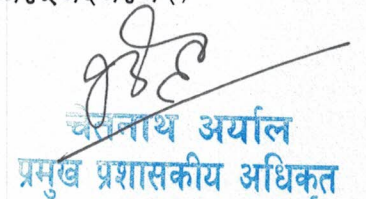 चेतनाथ अर्याल
प्रमुख प्रशासकीय अधिकृत